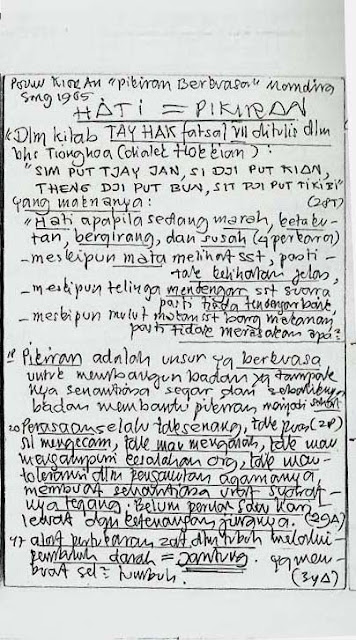 Pouw Kioe An "Pikiran Berkuasa" Mamdira
Smg 1965
HATI = PIKIRAN
Dlm kitab TAY HAK fatsal VII ditulis dlm
bhs Tionghoa (dialek Hokkian):
"SIM PUT TJAY JAN, SI DJI PUT KIAN,
THENG DJI PUT BUN, SIT DJI PUT TI KI BI"
yang maknanya: (28T)
"Hati apabila sedang marah, ketaku-
tan, bergirang, dan susah (4 perkara)
- meskipun mata melihat sst, pasti -
tak kelihatan jelas,
- meskipun telinga mendengar sst suara
pasti tidak terdengar baik,
- meskipun mulut makan sst barang makanan
pasti tidak merasakan apa2
18 Pikiran adalah unsur yg berkuasa
untuk membangun badan yg tampak
nya senantiasa segar dan sebaliknya
badan membantu pikiran menjadi sehat
20 Perasaan selalu tak senang, tak puas (28)
sll mengecam, tak mau mengalah, tak mau
mengampuni kesalahan org, tak mau
toleransi dlm agamanya,
membuat senantiasa urat syaraf -
nya tegang. Belum
lewat dgn ketenangan jiwanya. (29A)
47 alat pertukaran zat dlm tubuh melalui
pembuluh darah = Jantung. yg mem
buat sel2 tumbuh. (34A)